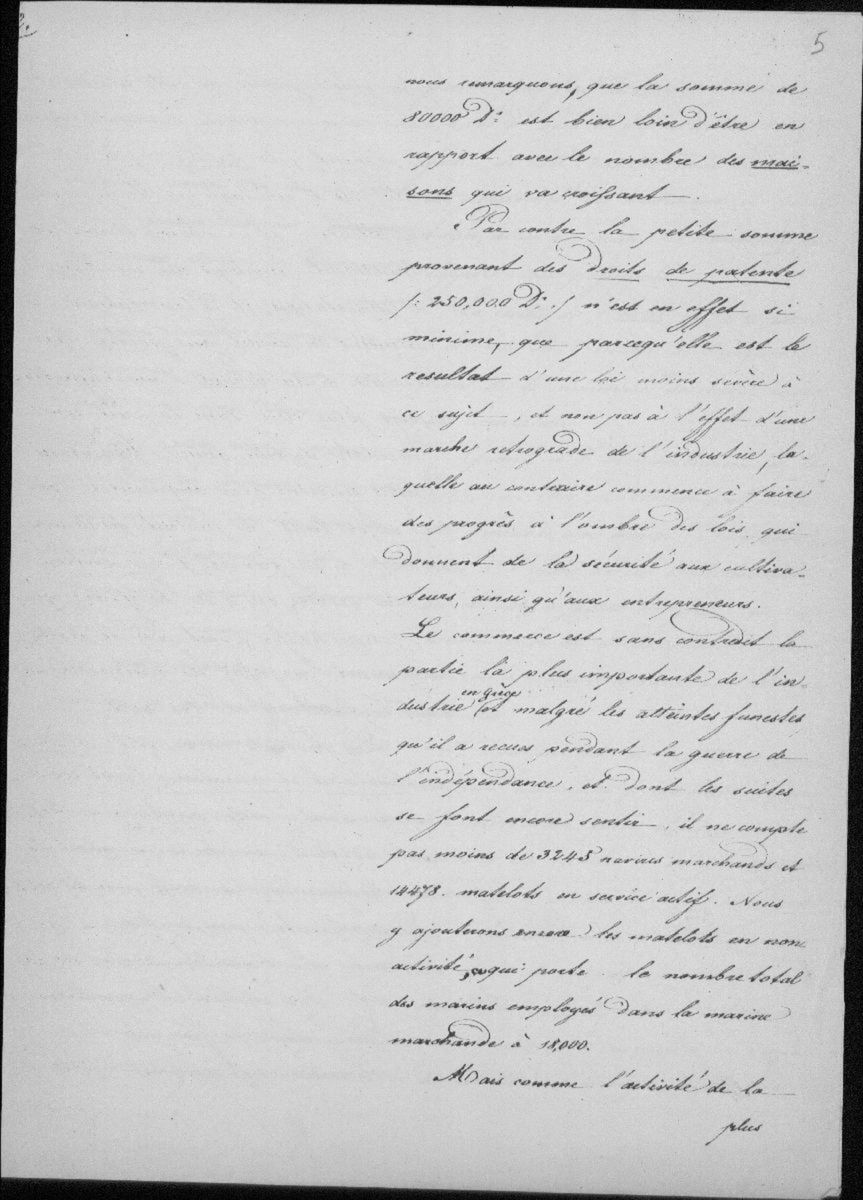 2.
5
nous remarquons, que la somme de
80000 D.: est bien loin d'être en
rapport avec le nombre des mai-
sons qui va croissant.
Par contre la petite somme
provenant des droits de patente
/: 250,000 D.: / n'est en effet si
minime, que parcequ'elle est le
resultat d'une loi moins sevère à
ce sujet, et non pas à l'effet d'une
marche retrograde de l'industrie, la-
quelle au contraire commence à faire
des progrès à l'ombre des lois, qui
donnent de la sécurité aux cultiva-
teurs, ainsi qu'aux entrepreneurs.
Le commerce est sans contredit la
partie la plus importante de l'in-
en Grèce
dustrie et malgré les atteintes funestes
qu'il a recues pendant la guerre de
l'indépendance, et dont les suites
se font encore sentir, il ne compte
pas moins de 3245 navires marchands et
14478 matelots en service actif. Nous
y ajouterons encore les matelots en non
activité, ce qui porte le nombre total
des marins employés dans la marine
marchande à 18,000.
Mais comme l'activité de la
plus